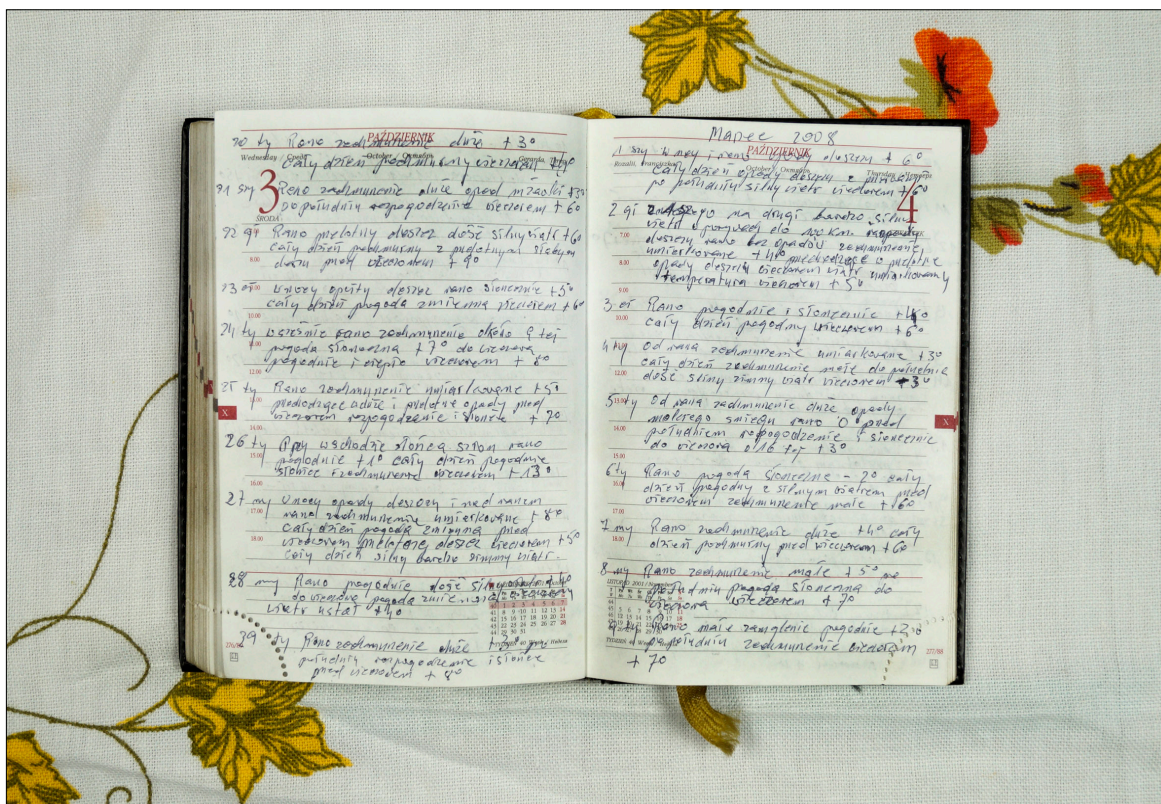 PAŹDZIERNIK
20 ty Rano zachmurzenie duże + 3°
Wednesday
cały dzień pochmurny wieczorem
3
21 szy Rano zachmurzenie duże opad mżawki + 3°
po południu rozpogodzenie wieczorem + 6°
ŚRODA
22 gi Rano przelotny deszcz dość silny wiatr + 6°
cały dzień pochmurny z przelotnym słabym
deszczem przed wieczorem + 9°
23 ci W nocy opady deszcz rano słonecznie + 5°
cały dzień pogoda zmienna wieczorem + 6°
24 ty wcześnie rano zachmurzenie około 9 tej
pogoda słoneczna + 7° do wieczora
pogodnie i ciepło wieczorem + 8°
25 ty Rano zachmurzenie umiarkowane + 5°
przechodzące duże i przelotne opady przed
wieczorem rozpogodzenie i słońce + 7°
X
26 ty Przy wschodzie słońca szron rano
pogodnie + 1° cały dzień pogodnie
słońce zachmurzenie wieczorem + 13°
27 my W nocy opady deszczu i nad ranem
rano zachmurzenie umiarkowane + 8°
cały dzień pogoda zmienna przed
wieczorem przelotny deszcz wieczorem + 5°
cały dzień silny bardzo zimny wiatr.
28 my Rano pogodnie dość silny
do wieczora pogoda
wiatr ustał + 4°
29 ty Rano zachmurzenie duże + 3° po
południu rozpogodzenie i słońce
przed wieczorem + 8°
276/89
Marzec 2008
PAŹDZIERNIK
1 szy W nocy i rano opady deszczu + 6°
Thursday
cały dzień opady deszczu z
po południu silny wiatr wieczorem + 6°
4
2 gi na drugi bardzo silny
wiatr w porywach do 100 km
deszczu rano bez opadów zachmurzenie
umiarkowane + 4° przechodzące w przelotne
opady deszczu wieczorem wiatr umiarkowany
temperatura wieczorem + 5°
3 ci Rano pogodnie i słonecznie + 4°
cały dzień pogodny wieczorem + 6°
4 ty Od rana zachmurzenie umiarkowane + 3°
cały dzień zachmurzenie małe do południa
dość silny zimny wiatr wieczorem + 3°
5 ty Od rana zachmurzenie duże opady
mokrego śniegu rano 0 przed
południem rozpogodzenie i słonecznie
do wieczora o 16 tej + 3°
X
6 ty Rano pogoda słoneczna - 2° cały
dzień pogodny z silnym wiatrem przed
wieczorem zachmurzenie małe + 6°
7 my Rano zachmurzenie duże + 4° cały
dzień pochmurny przed wieczorem + 6°
8 my Rano zachmurzenie małe + 5° po
LISTOPAD 2001
południu pogoda słoneczna do
wieczora wieczorem + 7°
9 ty Rano małe zamglenie pogodnie + 2°
po południu zachmurzenie wieczorem
+ 7°
277/88